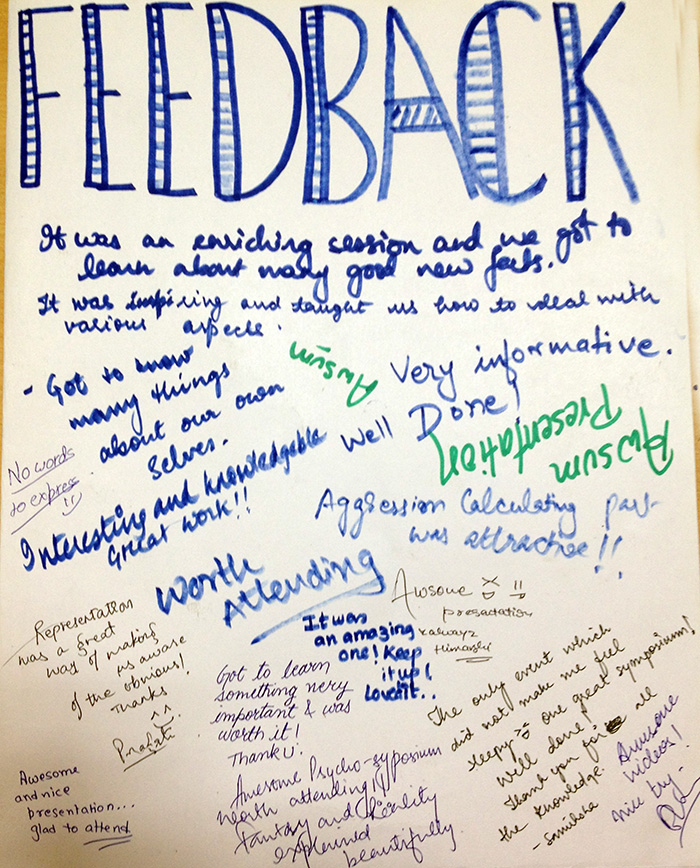 FEEDBACK
It was an enriching session and we got to
learn about many good new facts.
It was inspiring and taught us how to deal with
various aspects.
- Got to know
many things
about our own
selves.
Awsum
Very informative.
Well Done!
Awsum
Presentation
No words
to express
Interesting and knowledgeable
Great work!!
Aggression Calculating part
was attractive!!
Worth
Attending
Awsome
presactation
Himanshi
It was
an amazing
one! Keep
it up!
Loved it..
Representation
was a great
way of making
us aware
of the obvious!
Thanks!
Prakriti
Got to learn
something very
important & was
worth it!
Thank U!
The only event which
did not make me feel
sleepy one great symposium!
Well done!
Thank you for all
the knowledge.
Awesome
videos!
nice try.
Awesome
and nice
presentation...
glad to attend
Awesome Psycho-syposium
worth attending!!
Fantasy and Reality
explained
beautifully.